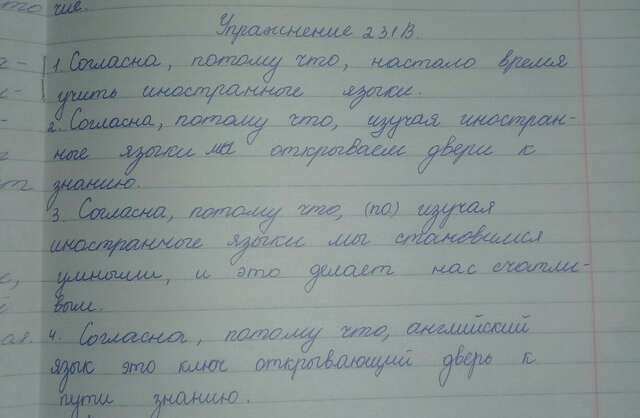 Упражнение 231В.
1. Согласна, потому что, настало время
учить иностранные языки.
2. Согласна, потому что, изучая иностран-
ные языки мы открываем двери к
знанию.
3. Согласна, потому что, (по) изучая
иностранные языки мы становимся
умными, и это делает нас счатли-
вым.
4. Согласна, потому что, английский
язык это ключ открывающий дверь к
пути знанию.